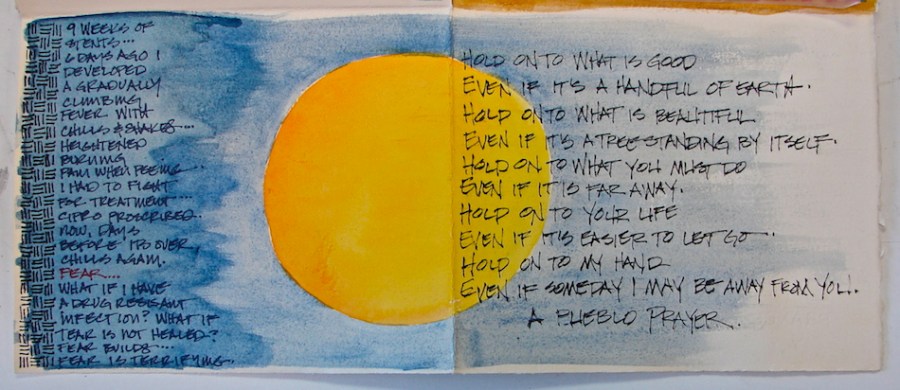 9 WEEKS OF
STENTS...
6 DAYS AGO I
DEVELOPED
A GRADUALLY
CLIMBING
FEVER WITH
CHILLS & SHAKES....
HEIGHTENED
BURNING
PAIN WHEN PEEING...
I HAD TO FIGHT
FOR TREATMENT...
CIPRO PROSCRIBED..
NOW, DAYS
BEFORE IT'S OVER,
CHILLS AGAIN.
FEAR....
WHAT IF I HAVE
A DRUG RESISTANT
INFECTION? WHAT IF
TEAR IS NOT HEALED?
FEAR BUILDS....
FEAR IS TERRIFYING..
HOLD ON TO WHAT IS GOOD
EVEN IF IT'S A HANDFUL OF EARTH.
HOLD ONTO WHAT IS BEAUTIFUL
EVEN IF IT'S A TREE STANDING BY ITSELF.
HOLD ON TO WHAT YOU MUST DO
EVEN IF IT IS FAR AWAY.
HOLD ON TO YOUR LIFE
EVEN IF IT'S EASIER TO LET GO..
HOLD ON TO MY HAND
EVEN IF SOMEDAY I MAY BE AWAY FROM YOU.
A PUEBLO PRAYER.